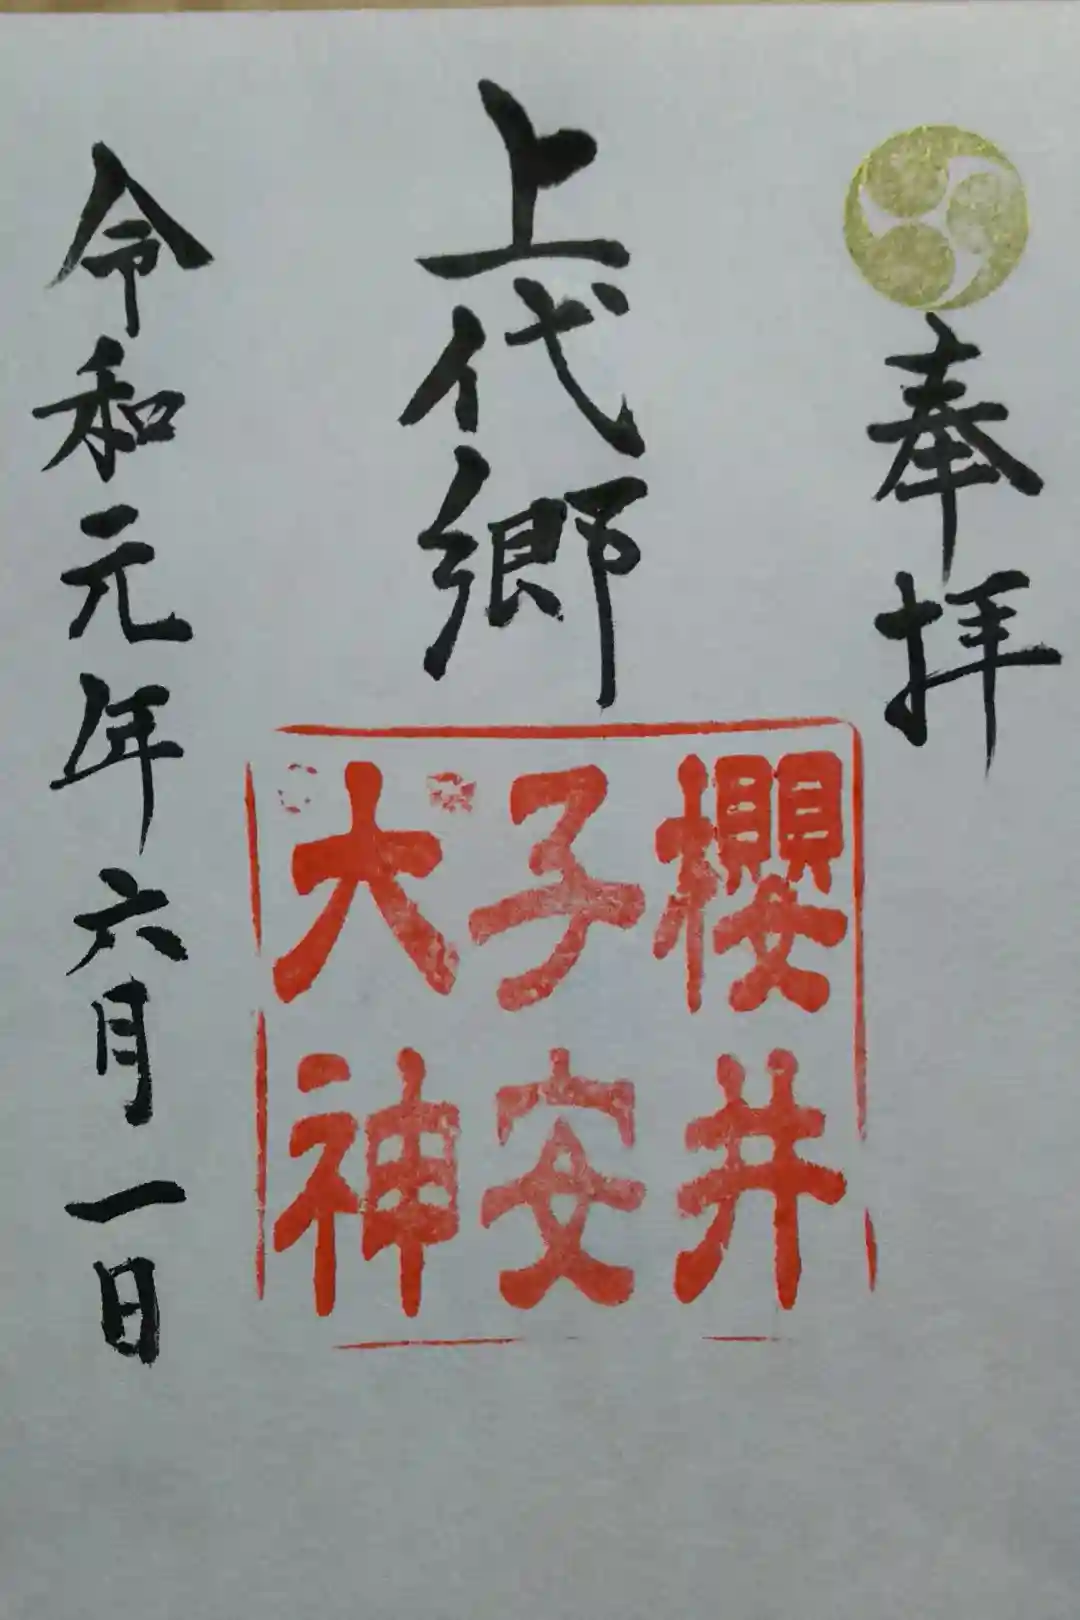 奉拝
上代郷
櫻井
子安
大神
令和元年六月一日